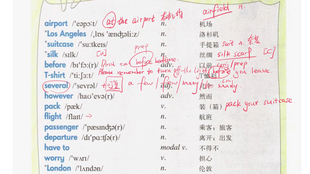 airfield n.
airport /ˈeəpɔːt/ at the airport n. 机场
'Los Angeles /ˌlɒsˈændʒəliːz/ 洛杉矶
'suitcase /ˈsuːtkeɪs/ n. 手提箱 suit n.
'silk /sɪlk/ n. 丝绸 silk scarf
prep
before /bɪˈfɔː(r)/ before adv. 以前 /prep
Please remember to turn off the lights before you leave
T-shirt /ˈtiːʃɜːt/ n.
several /ˈsevrəl/ a few / many /
however /haʊˈevə(r)/ adv. 然而
pack /pæk/ v. 装（箱） pack your suitcase
flight /flaɪt/ n. 航班
passenger /ˈpæsɪndʒə(r)/ n. 乘客；旅客
departure /dɪˈpɑːtʃə(r)/ n. 离开；出发
have to modal v. 不得不
worry /ˈwʌri/ v. 担心
'London /ˈlʌndən/ n. 伦敦